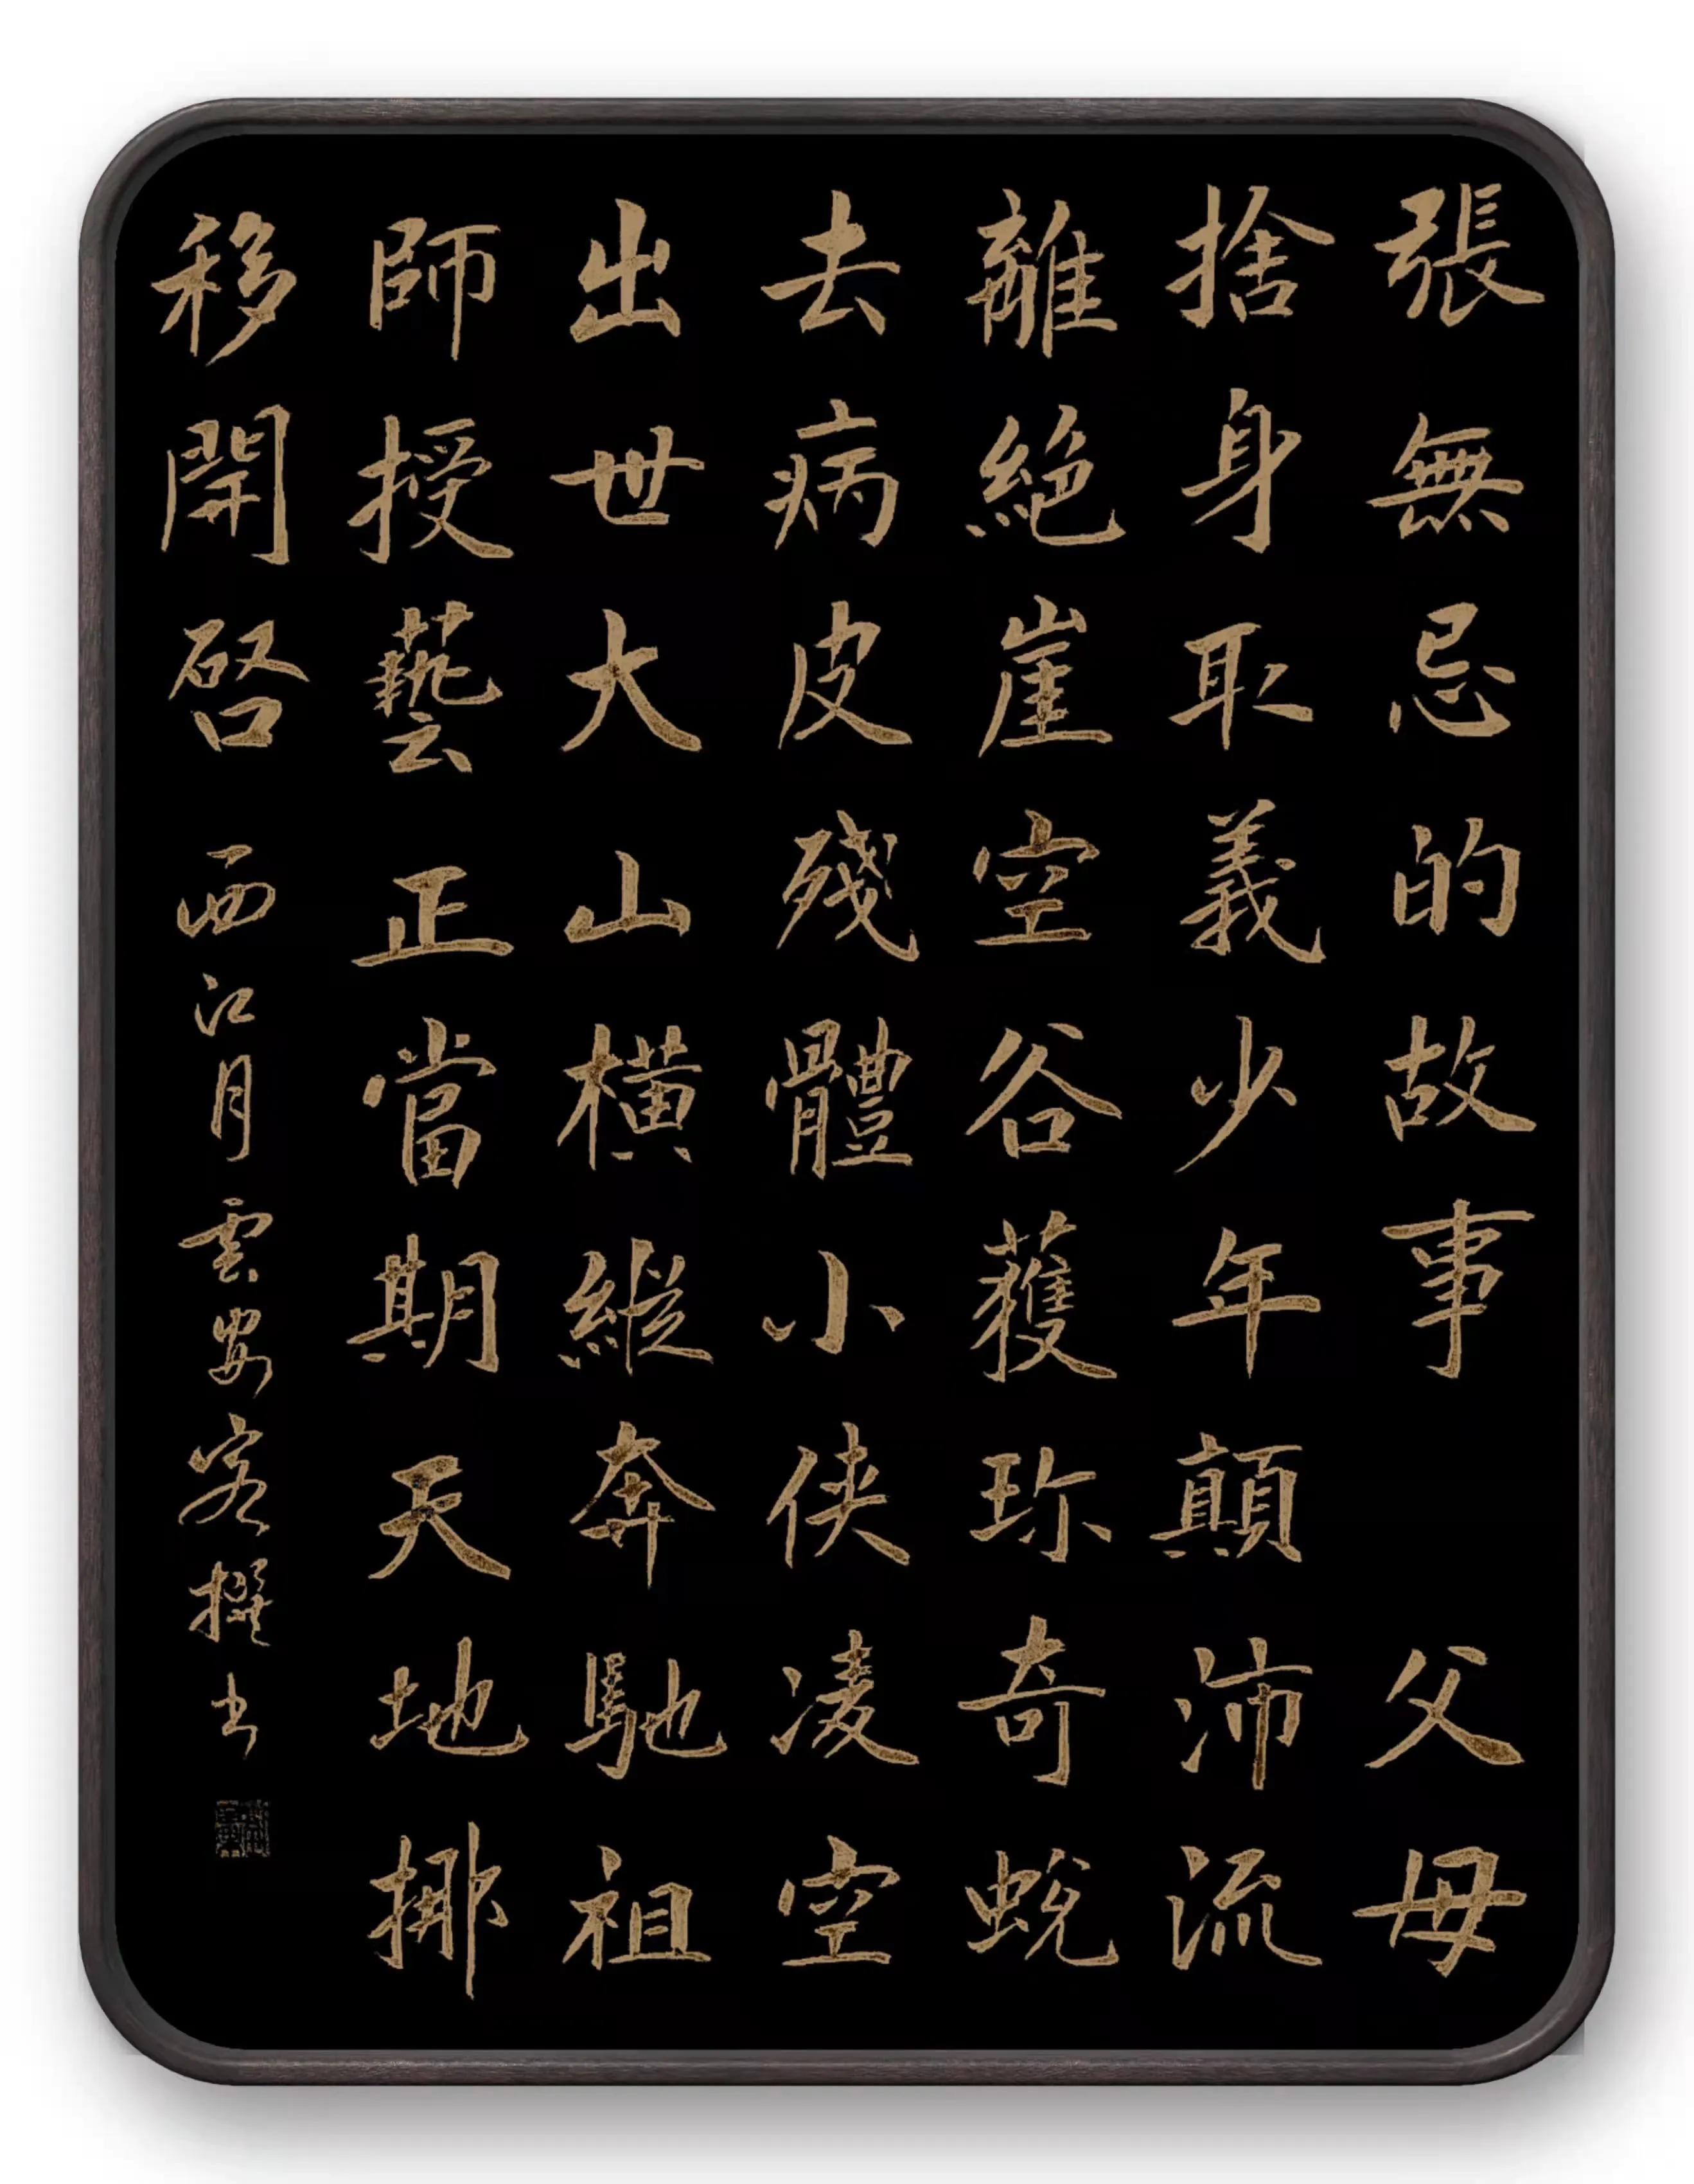 張無忌的故事 父母
捨身取義少年顛沛流
離絕崖空谷獲珍奇蛻
去病皮殘體小俠凌空
出世大山橫縱奔馳祖
師授藝正當期天地挪
移開啓 西江月雲安客撰書